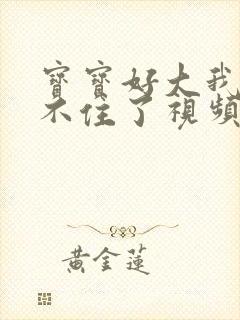 寶寶好大我
不住了視頻
黃金蓮